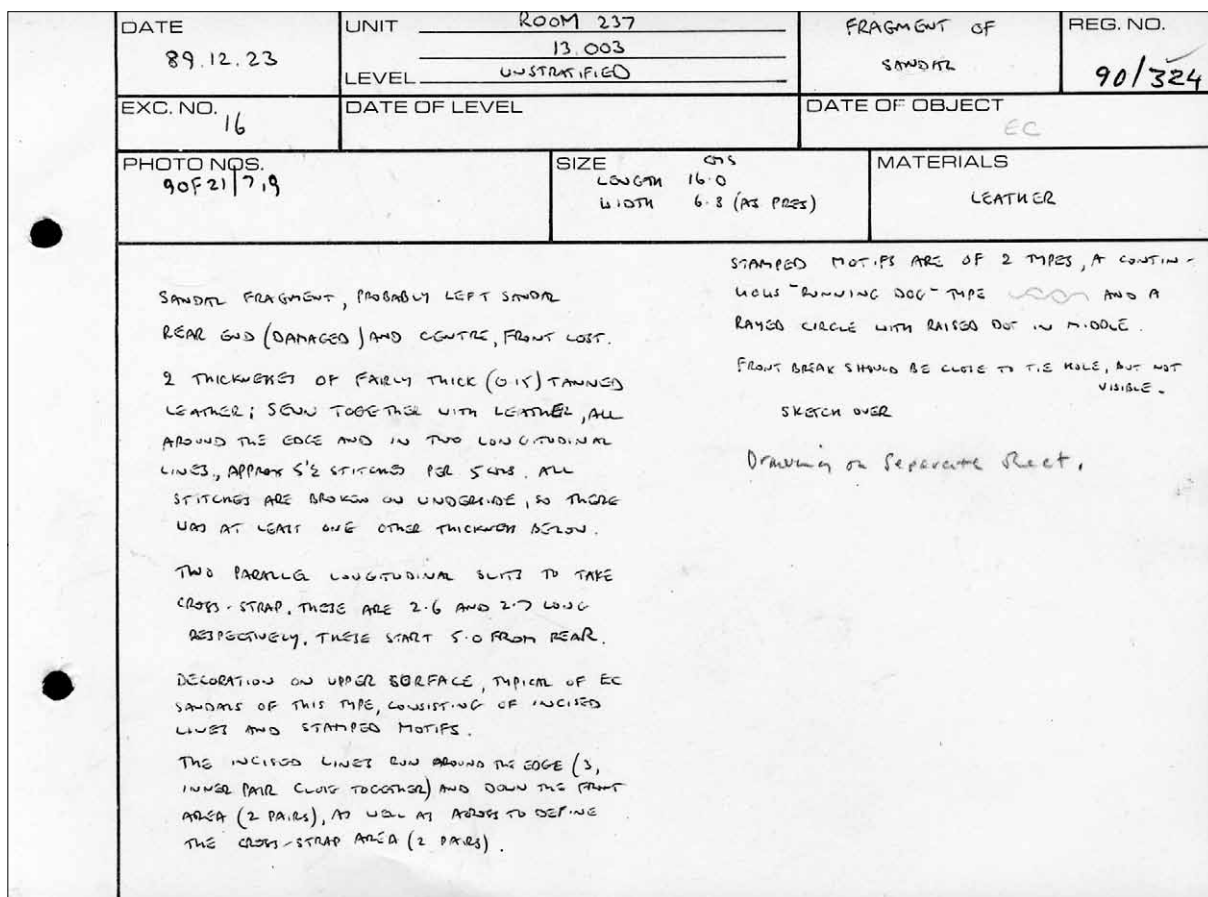 DATE
89.12.23
UNIT ROOM 237
13.003
LEVEL UNSTRATIFIED
FRAGMENT OF
SANDAL
REG. NO.
90/324
EXC. NO.
16
DATE OF LEVEL
DATE OF OBJECT
EC
PHOTO NOS.
90F21/7,9
SIZE CMS
LENGTH 16.0
WIDTH 6.8 (AS PRES)
MATERIALS
LEATHER
SANDAL FRAGMENT, PROBABLY LEFT SANDAL
REAR END (DAMAGED) AND CENTRE, FRONT LOST.
2 THICKNESSES OF FAIRLY THICK (0.15) TANNED
LEATHER; SEWN TOGETHER WITH LEATHER, ALL
AROUND THE EDGE AND IN TWO LONGITUDINAL
LINES, APPROX 5½ STITCHES PER 5 CMS. ALL
STITCHES ARE BROKEN ON UNDERSIDE, SO THERE
WAS AT LEAST ONE OTHER THICKNESS BELOW.
TWO PARALLEL LONGITUDINAL SLITS TO TAKE
CROSS-STRAP, THESE ARE 2.6 AND 2.7 LONG
RESPECTIVELY, THESE START 5.0 FROM REAR.
DECORATION ON UPPER SURFACE, TYPICAL OF EC
SANDALS OF THIS TYPE, CONSISTING OF INCISED
LINES AND STAMPED MOTIFS.
THE INCISED LINES RUN AROUND THE EDGE (3,
INNER PAIR CLOSE TOGETHER) AND DOWN THE FRONT
AREA (2 PAIRS), AS WELL AS ACROSS TO DEFINE
THE CROSS-STRAP AREA (2 PAIRS).
STAMPED MOTIFS ARE OF 2 TYPES, A CONTIN-
UOUS "RUNNING DOG" TYPE AND A
RAYED CIRCLE WITH RAISED DOT IN MIDDLE.
FRONT BREAK SHOULD BE CLOSE TO TIE HOLE, BUT NOT
VISIBLE.
SKETCH OVER
Drawing on Separate Sheet.